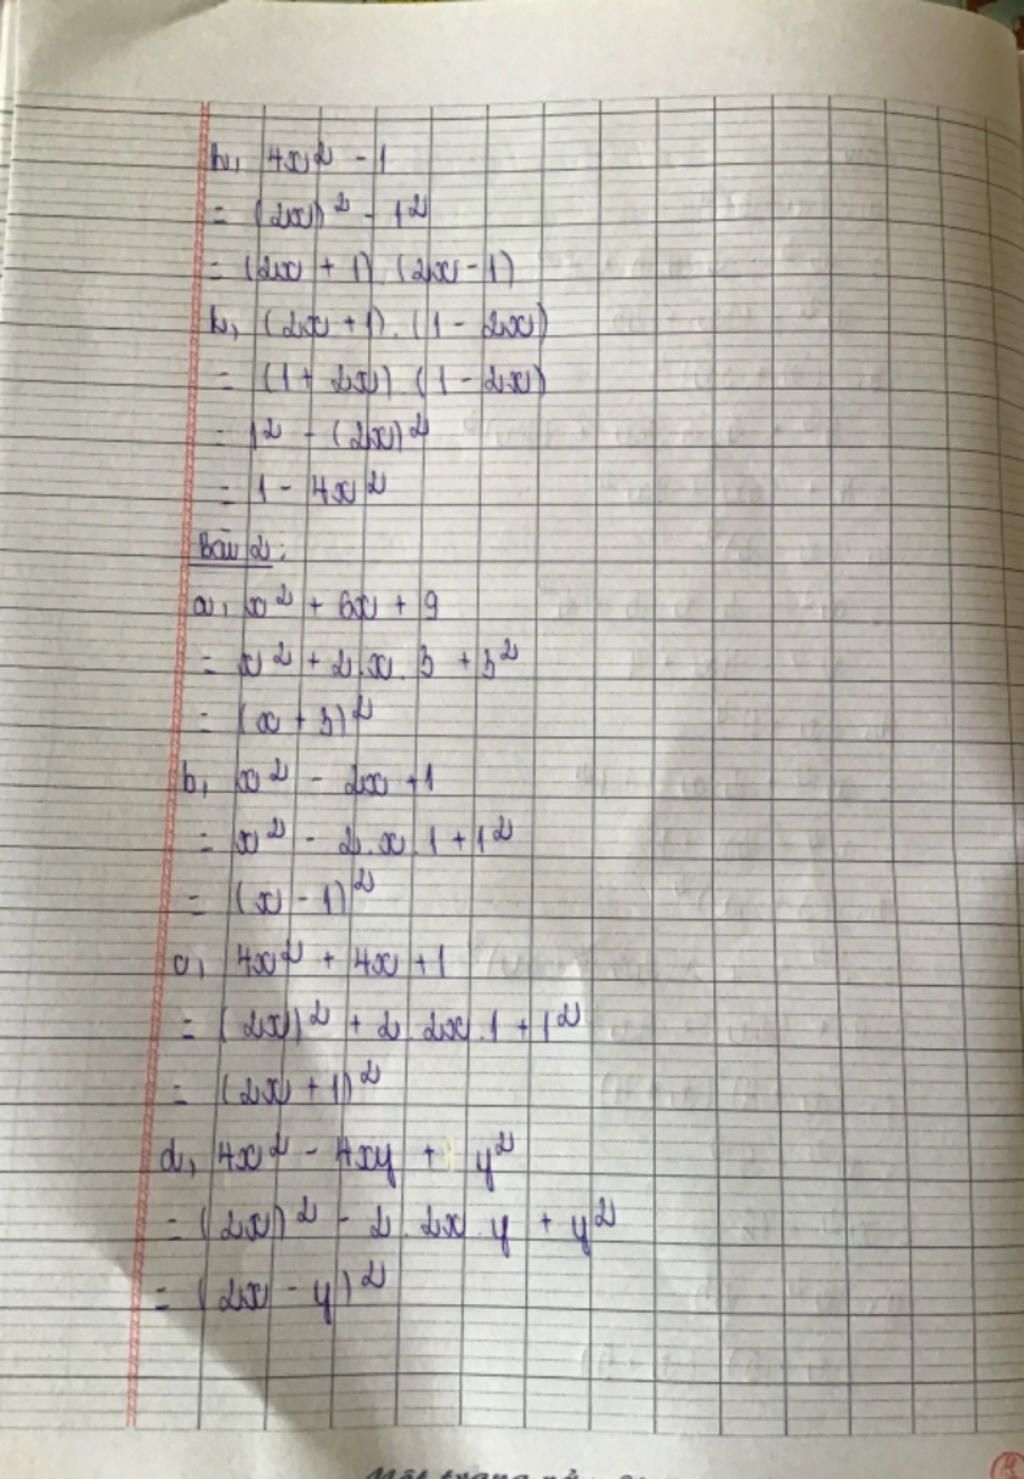 h, 4x² - 1
= (2x)² - 1²
= (2x + 1) (2x - 1)
k, (2x + 1). (1 - 2x)
= (1 + 2x) (1 - 2x)
= 1² - (2x)²
= 1 - 4x²
Bài 2:
a, x² + 6x + 9
= x² + 2.x.3 + 3²
= (x + 3)²
b, x² - 2x + 1
= x² - 2.x.1 + 1²
= (x - 1)²
c, 4x² + 4x + 1
= (2x)² + 2.2x.1 + 1²
= (2x + 1)²
d, 4x² - 4xy + y²
= (2x)² - 2.2x.y + y²
= (2x - y)²
Một trang